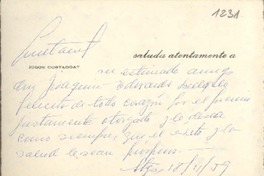 1231
saluda atentamente a
su estimado amigo
don Joaquín Edwards Bello y lo
felicita de todo corazón por el premio
justamente otorgado y le desea
como siempre, que el éxito y la
salud le sean
18/4/59